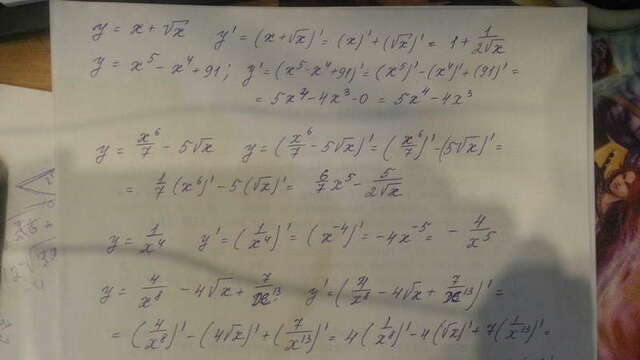 y = x + √x   y' = (x+√x)' = (x)' + (√x)' = 1 + 1/(2√x)
y = x⁵ - x⁴ + 91;   y' = (x⁵-x⁴+91)' = (x⁵)' - (x⁴)' + (91)' =
= 5x⁴ - 4x³ - 0 = 5x⁴ - 4x³
y = x⁶/7 - 5√x   y = (x⁶/7 - 5√x)' = (x⁶/7)' - (5√x)' =
= 1/7 (x⁶)' - 5(√x)' = 6/7 x⁵ - 5/(2√x)
y = 1/x⁴   y' = (1/x⁴)' = (x⁻⁴)' = -4x⁻⁵ = - 4/x⁵
y = 4/x⁸ - 4√x + 7/x¹³   y' = (4/x⁸ - 4√x + 7/x¹³)' =
= (4/x⁸)' - (4√x)' + (7/x¹³)' = 4(1/x⁸)' - 4(√x)' + 7(1/x¹³)' =